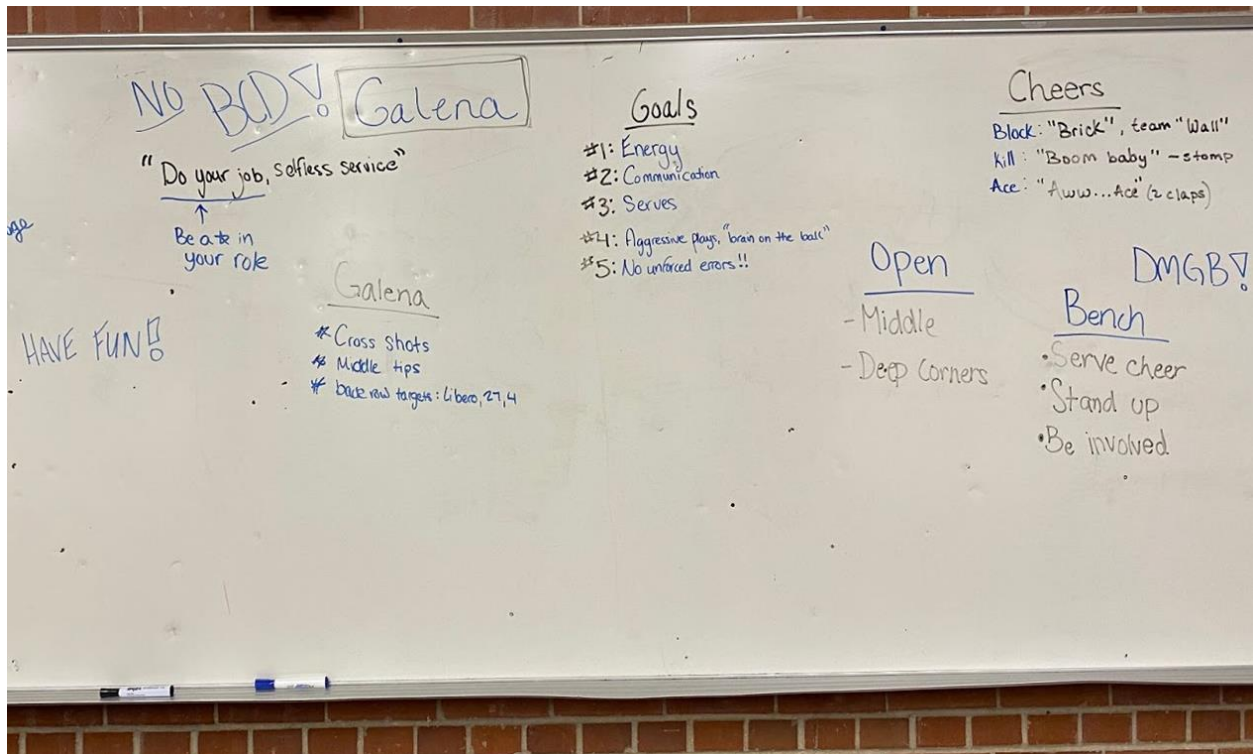 NO BCD! Galena
"Do your job, selfless service"
↑
Be a ☆ in
your role
HAVE FUN!
Galena
* Cross Shots
* Middle tips
* back row targets: Libero, 27, 4
Goals
#1: Energy
#2: Communication
#3: Serves
#4: Aggressive plays, "brain on the ball"
#5: No unforced errors!!
Cheers
Block: "Brick", team "Wall"
Kill: "Boom baby" - stomp
Ace: "Aww...Ace" (2 claps)
Open
- Middle
- Deep Corners
DMGB!
Bench
• Serve cheer
• Stand up
• Be involved